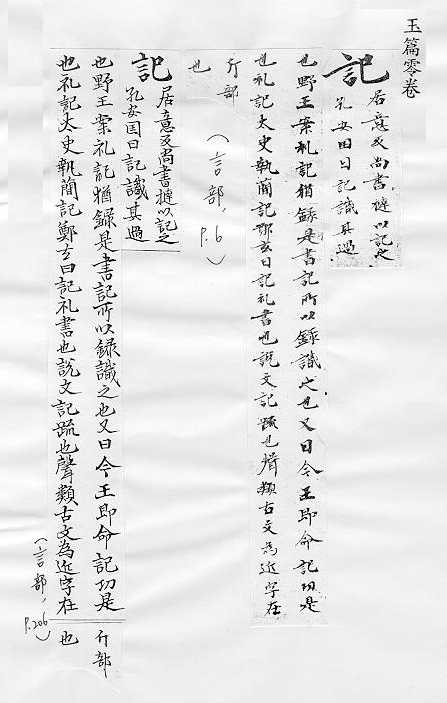 玉篇零卷
記
居意反尚書撻以記之
孔安国曰記識其過
也野王案礼記猶録是書記所以録識之也又曰今王即命記功是
也礼記太史執簡記鄭玄曰記礼書也說文記䟽也聲類古文為近字在
亍部
也
(言部, P.6)
記
居意反尚書撻以記之
孔安国曰記識其過
也野王案礼記猶録是書記所以録識之也又曰今王即命記功是
也礼記太史執簡記鄭玄曰記礼書也說文記䟽也聲類古文為近字在
亍部
也
(言部, P.206)